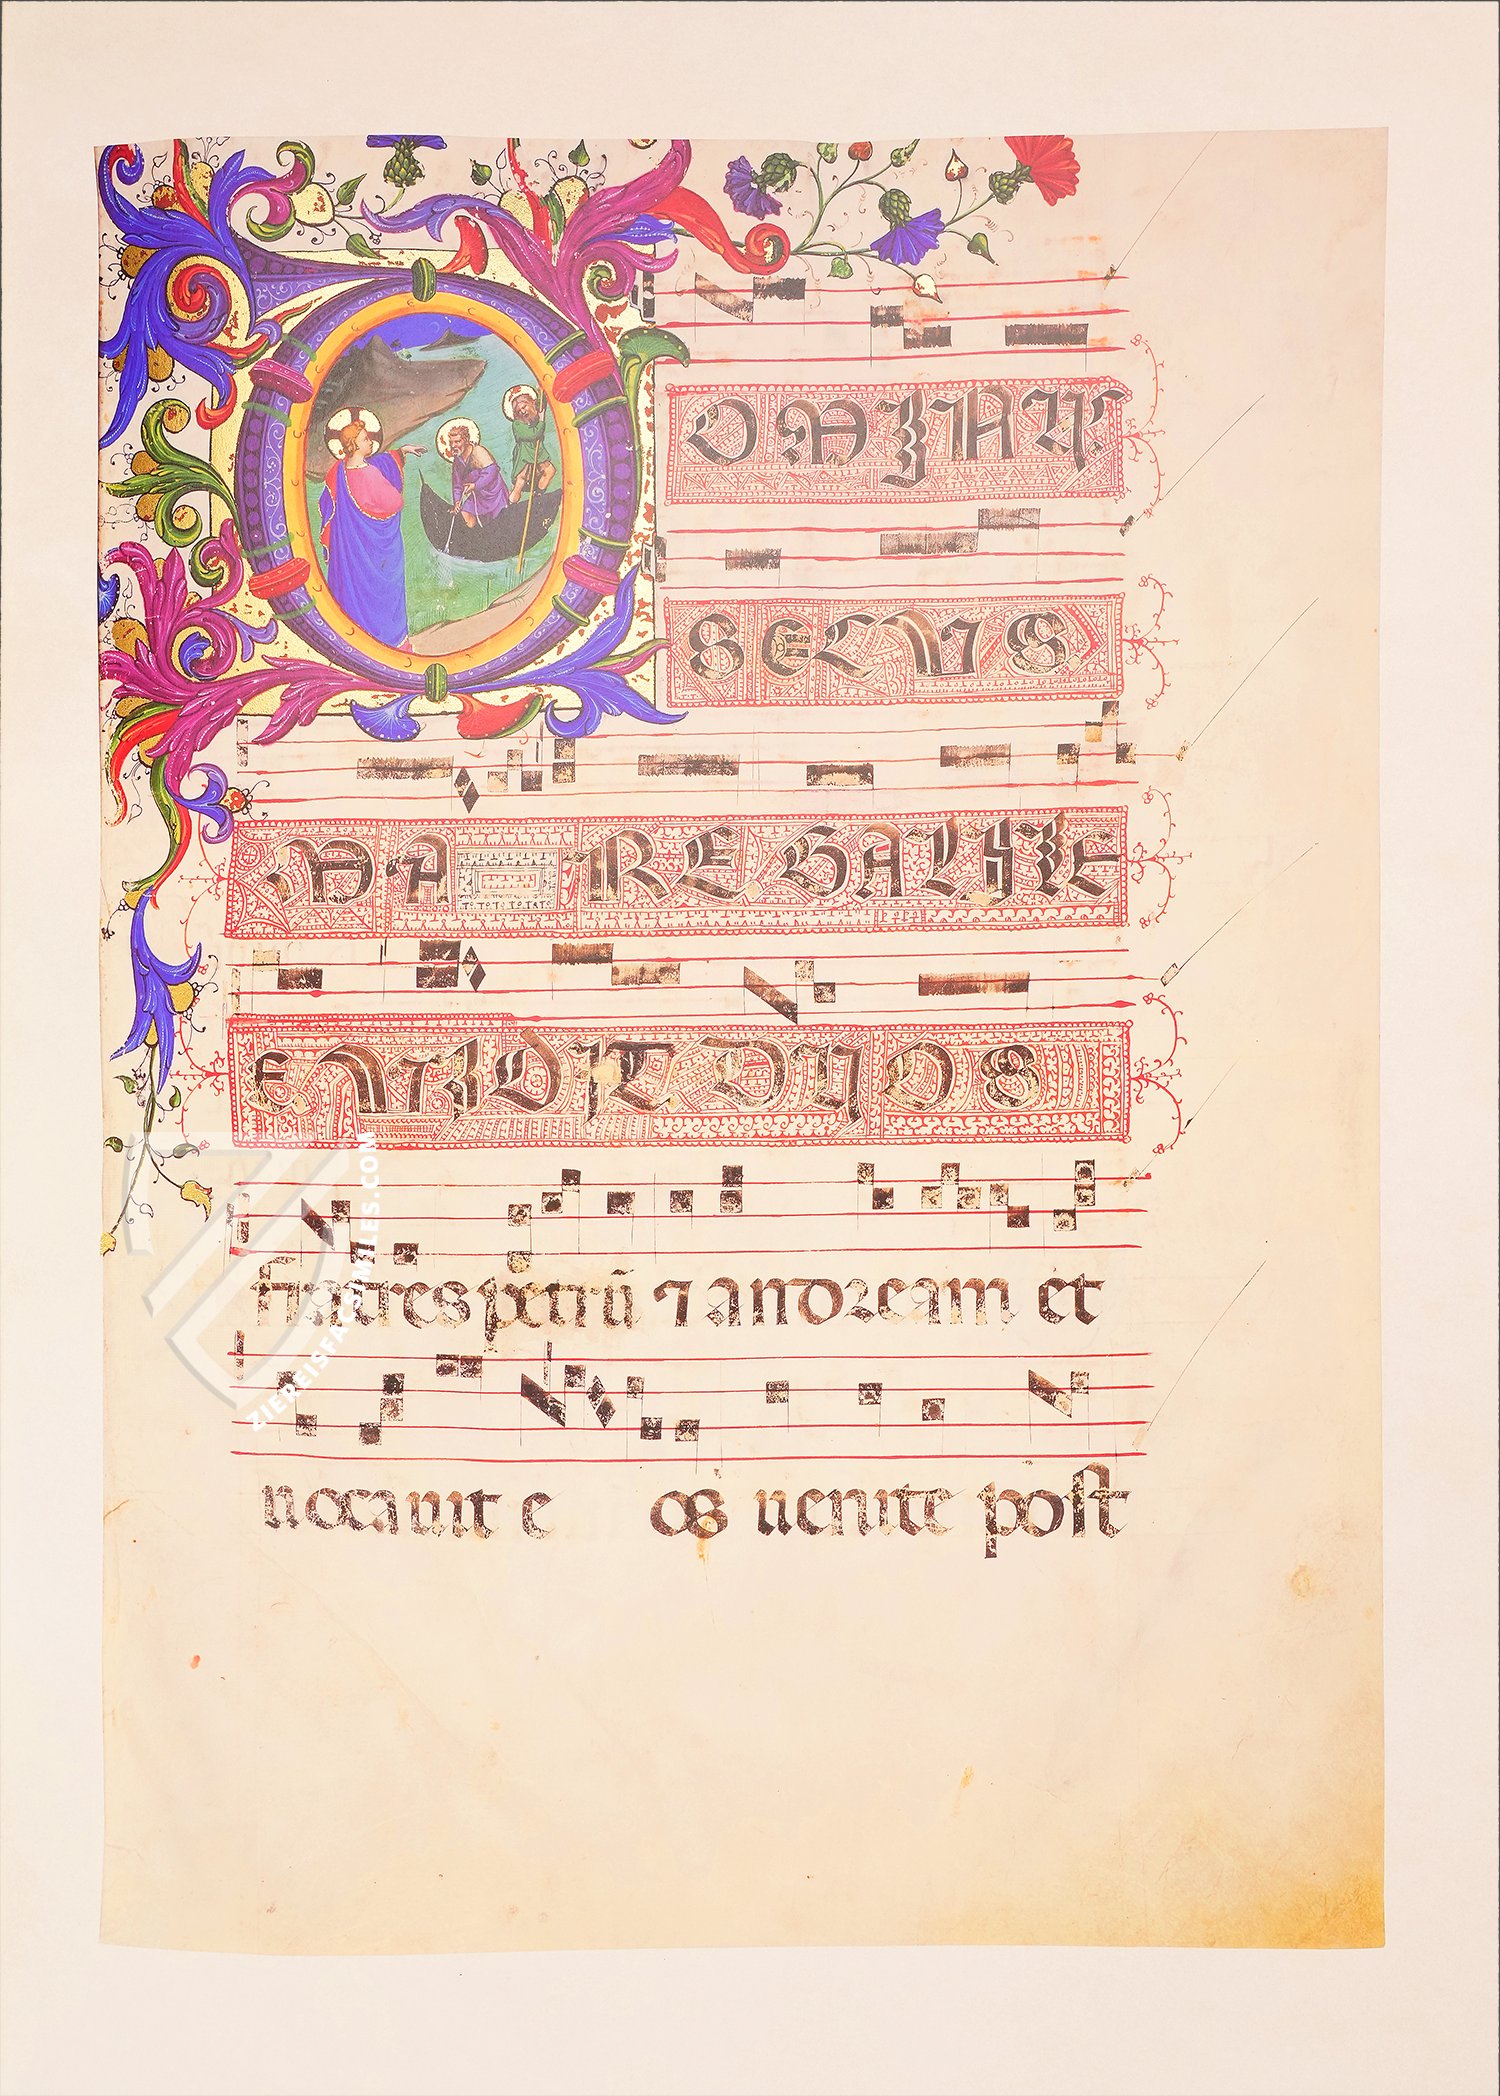 DOMINU'
SECUS
MA RE GALILE
E UIDIT DUOS
fratres petrū ⁊ andream et
uocauit e os uenite post
ZIEREISFACSIMILES.COM